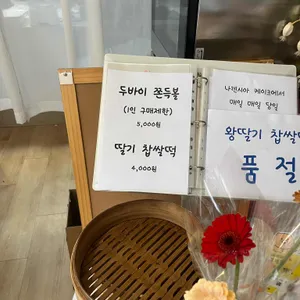 두바이 쫀득볼
(1인 구매제한)
5,000원
딸기 찹쌀떡
4,000원
나젠시아 케이크에서
매일 매일 당일
왕딸기 찹쌀
품절